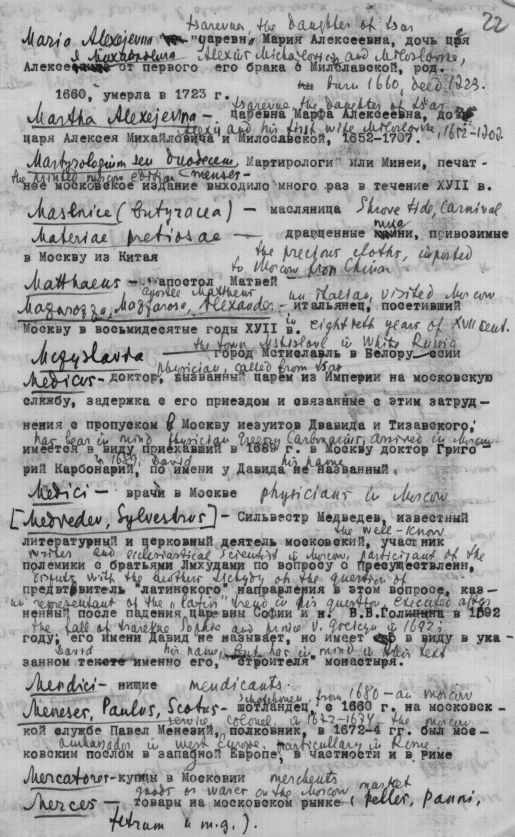 22
tsarevna the daughter of tsar
Maria Alexejevna — царевна Мария Алексеевна, дочь царя
Alexius Michailovich and Miloslavna,
от первого его брака с Милославской, род.
born 1660, deed 1723.
1660, умерла в 1723 г.
tsarevna, the daughter of tsar
Martha Alexejevna — царевна Марфа Алексеевна,
Alexy and his first wife Miloslavna, 1652-1707.
царя Алексея Михайловича и Милославской, 1652-1707.
Martyrologium seu duodecem, Мартирологи" или Минеи, печат-
the printed moscow edition menses-
ное московское издание выходило много раз в течение XУII в.
Maslnice (butyracea) — масляница Shrove tide, Carnival
Materiae pretiosae — драгценные привозимые
the precious cloths, imported
в Москву из Китая
to Moscow from China
Matthaeus — апостол Матвей
apostle Mattheus
an italian, visited Moscow
Alexander - итальянец, посетивший
in eighteth years of XVII cent.
Москву в восьмидесятые годы XУII в.
the town Mstislavl in White Russia
город Мстиславль в Белору ссии
physician, called from tsar
Medicus - доктор, вызванный царем из Империи на московскую
службу, задержка с его приездом и связанные с этим затруд-
нения с пропуском в Москву иезуитов Двавида и Тизавского,
has bear in mind physician Gregory Carbonarius, arrived in Moscow
имеется в виду приехавший в 1689 г. в Москву доктор Григо-
in 1689, David his name
рий Карбонарий, по имени у Давида не названный
Medici — врачи в Москве physicians in Moscow
[Medvedev, Sylvestrus] - Сильвестр Медведев, известный
the well-know
литературный и церковный деятель московский, участник
writer and ecclesiastical scientist in Moscow, participant of the
полемики с братьями Лихудами по вопросу о Пресуществленн,
dispute with the brother Lichudy of the question of
представитель "латинского" направления в этом вопросе, каз-
an representant of the "latin" trend in his question executed after
ненный после падения царевны Софии и В.В.Голицына в 1692
the fall of tsarevna Sophie and prince V. Golicyn in 1692;
году, его имени Давид не называет, но имеет в виду в ука-
David his name, but has in mind in this text
занном тексте именно его, строителя" монастыря.
Mendici - нищие mendicants.
Scotchmen, from 1680 - an moscow
Meneser, Paulus, Scotus - шотландец, с 1660 г. на московск-
service colonel, in 1672-1674 the moscow
кой службе Павел Менезий, полковник, в 1672-4 гг. был мос-
ambassador in west Europe, particullary in Rome.
ковским послом в западной Европе, в частности и в Риме
Mercatores - купцы в Московии merchents
goods or wares on the Moscow market
Merces — товары на московском рынке (pelles, panni,
ferrum u m.g.).